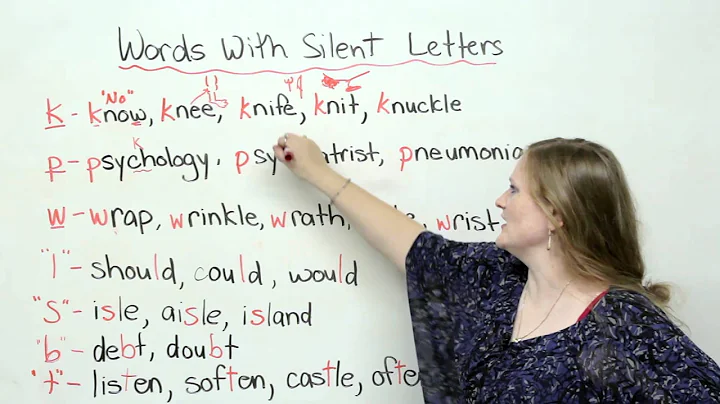 Words With Silent Letters
"No"
K - know, knee, knife, knit, knuckle
K
p - psychology, pneumonia
w - wrap, wrinkle, wrath, wrist
"l" - should, could, would
"S" - isle, aisle, island
"b" - debt, doubt
"t" - listen, soften, castle,